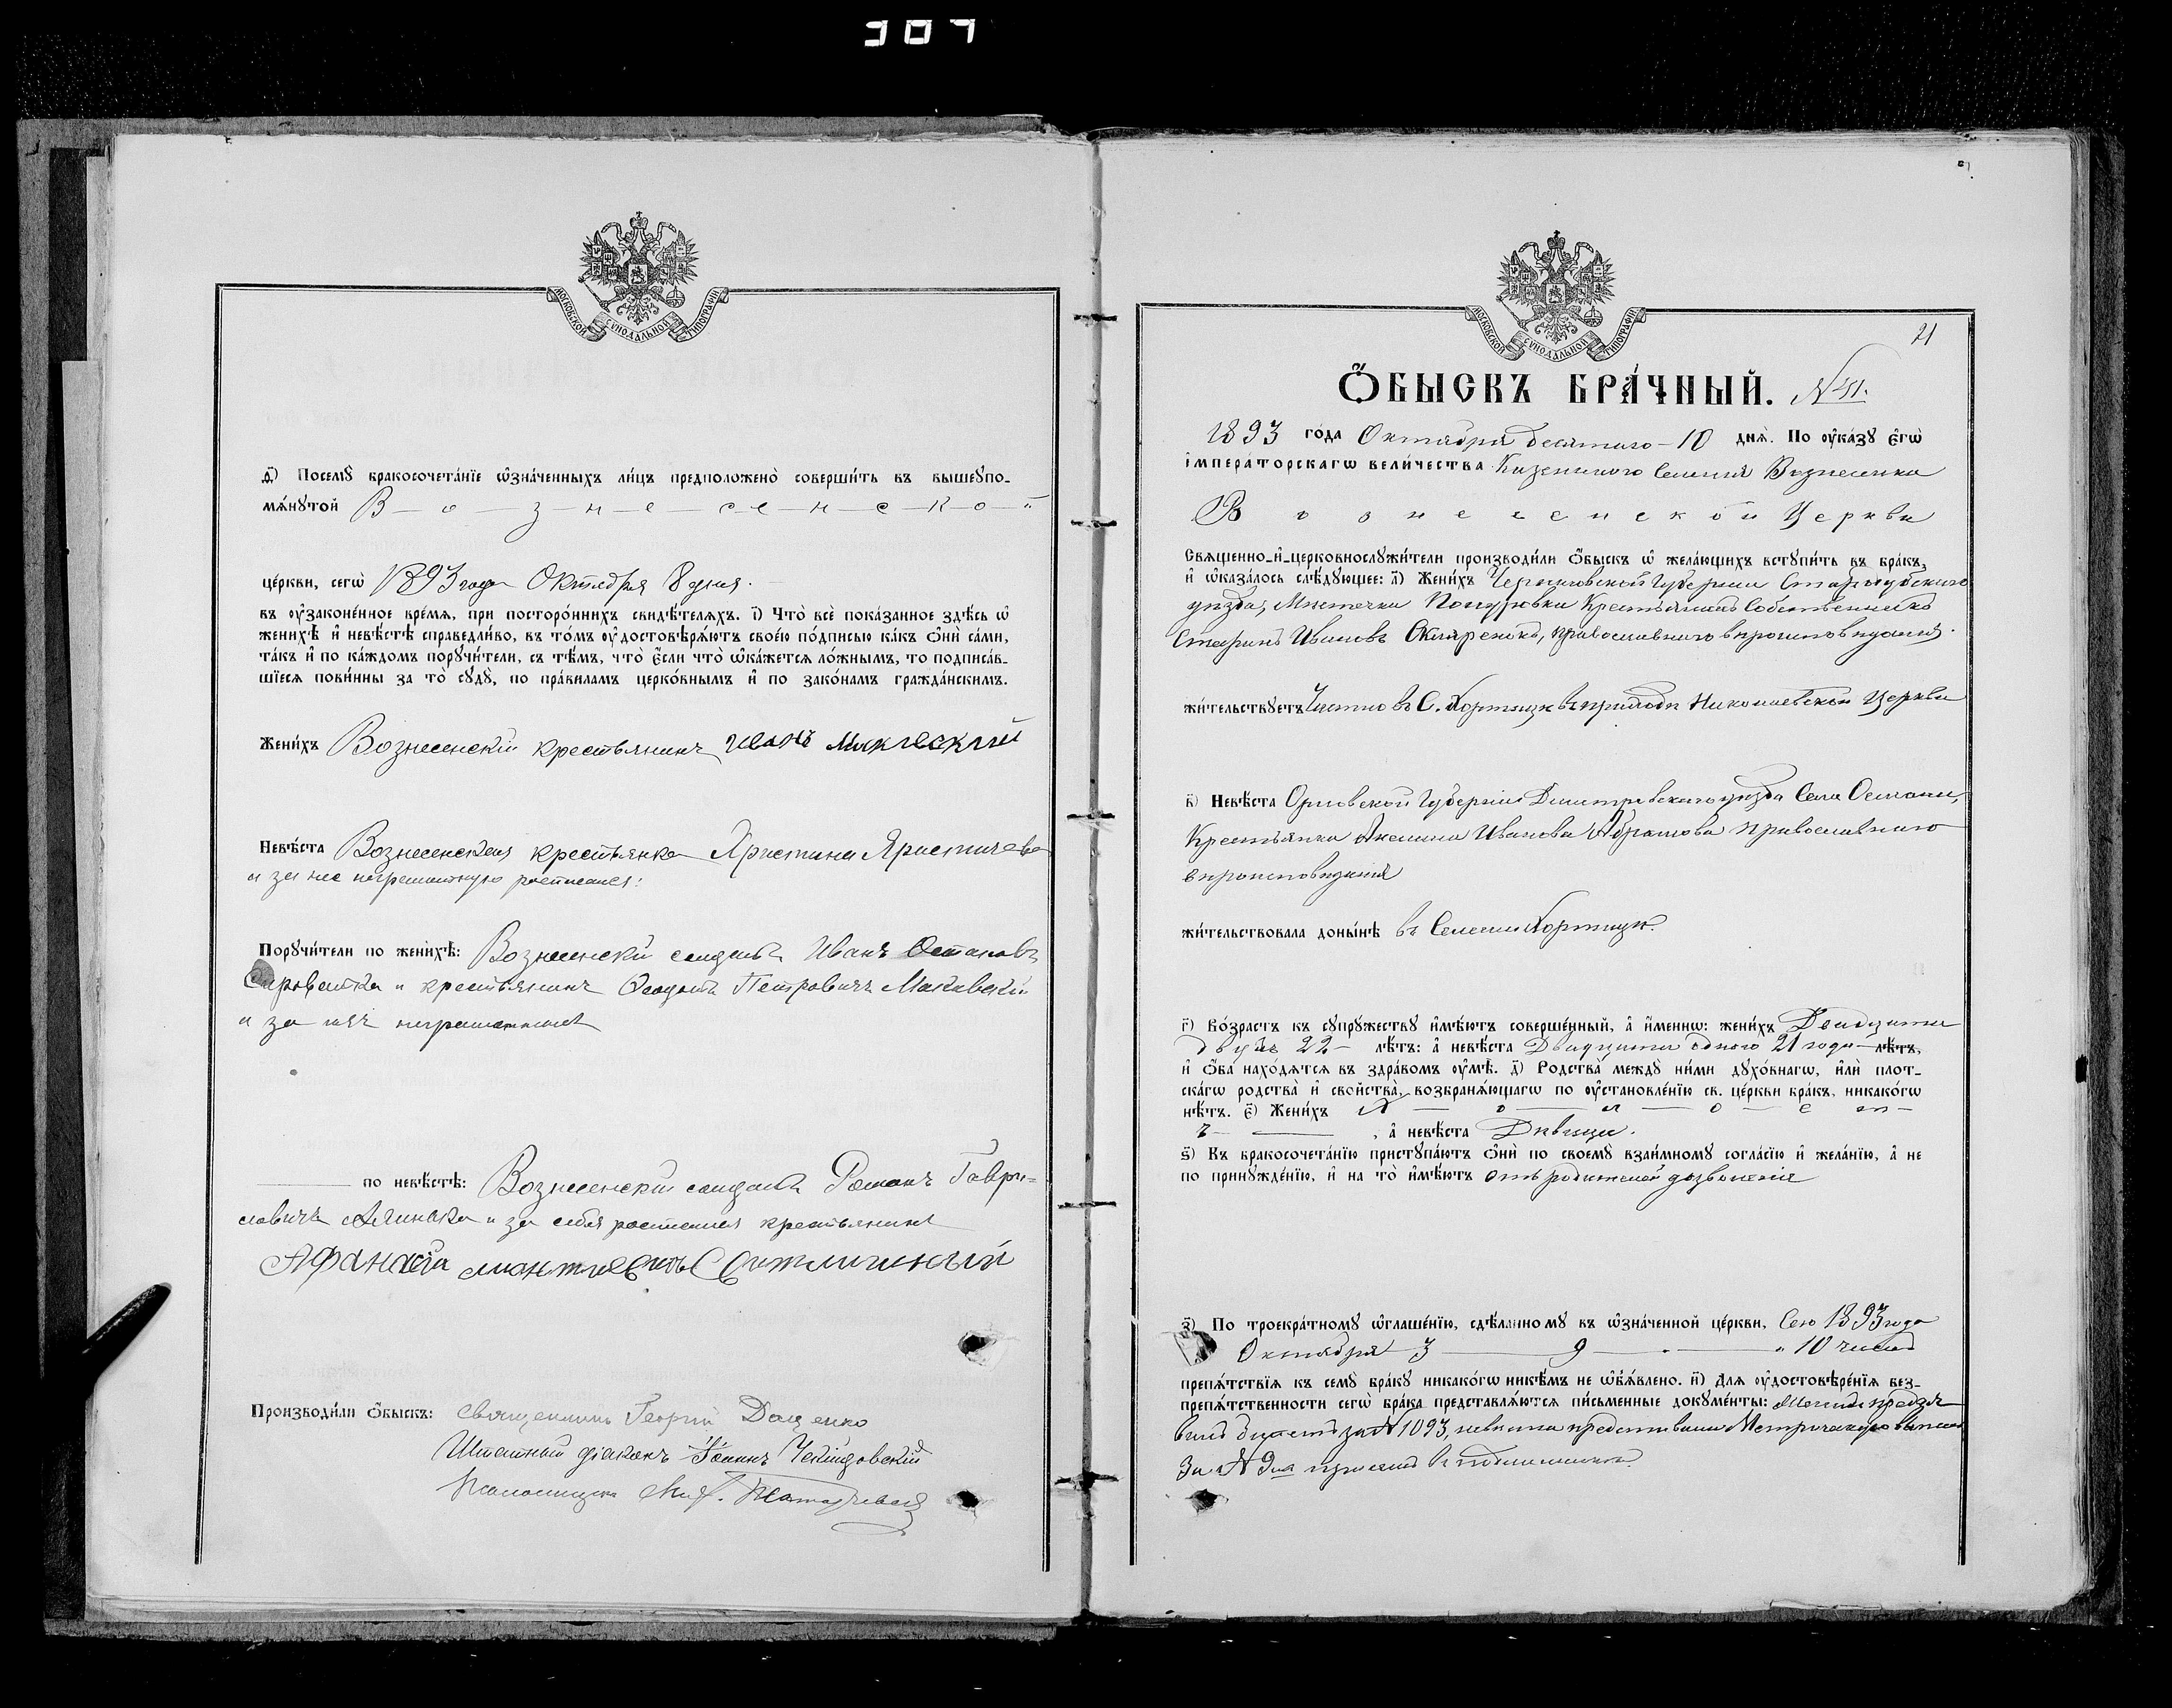 307
МОСКОВСКОЙ СѴНОДАЛЬНОЙ ТИПОГРАФІИ
д҃) Посемꙋ бракосочета́нїе ѡ҆зна́ченныхъ ли́цъ предположено̀ соверши́ть въ вышеꙋпо-
мѧ́нꙋтой В-о-з-н-е-се-н-с-к-о-й
це́ркви, сегѡ̀ 1893 года Октября 8 дня.
въ ᲂу҆законе́нное вре́мѧ, при посторо́ннихъ свидѣ́телѧхъ. і҃) Что̀ всѐ пока́занное здѣ́сь ѡ҆
женихѣ̀ и҆ невѣ́стѣ справедли́во, въ то́мъ ᲂу҆достовѣрѧ́ютъ свое́ю по́дписью ка́къ ѻ҆нѝ са́ми,
та́къ и҆ по ка́ждомъ порꙋчи́тели, съ тѣ́мъ, что̀ є҆́сли что̀ ѡ҆ка́жетсѧ ло́жнымъ, то подписа́в-
шїесѧ пови́нны за то̀ сꙋдꙋ̀, по пра́виламъ церко́внымъ и҆ по зако́намъ гражда́нскимъ.
Жени́хъ Вознесенскій крестьянинъ Иванъ Макіевскій
Невѣ́ста Вознесенская крестьянка Христина
и за нее неграмотную росписался:
Порꙋчи́тели по женихѣ̀: Вознесенскій солдатъ Иванъ Остаповъ
и крестьянинъ Ѳеодотъ Петровичъ Макіевскій
и за ихъ неграмотныхъ
по невѣ́стѣ: Вознесенскій солдатъ Романъ Гаври-
ловичъ и за себя росписался крестьянинъ
Афанасій
Производи́ли ѻ҆́быскъ: Священникъ Георгій Доценко
Штатный діаконъ Іоаннъ
Псаломщикъ Мих.
МОСКОВСКОЙ СѴНОДАЛЬНОЙ ТИПОГРАФІИ
21
Ѻ҆́БЫСКЪ БРА́ЧНЫЙ. №
1893 го́да Октября десятого - 10 днѧ̀. По ᲂу҆ка́зꙋ є҆гѡ̀
і҆мпера́торскагѡ вели́чества Казенного Селенія Вознесенки
Вознесенской Церкви
Свѧщенно-и҆-церковнослꙋжи́тели производи́ли ѻ҆́быскъ ѡ҆ жела́ющихъ встꙋпи́ть въ бра́къ,
и҆ ѡ҆каза́лось слѣ́дꙋющее: а҃) Жени́хъ Черниговской Губерніи Стародубского
уѣзда, Мѣстечка Понуровки Крестьянинъ Собственникъ
Стефанъ Ивановъ православнаго вѣроисповѣданія.
жи́тельствꙋетъ въ С. Хортицѣ въ приходѣ Николаевской Церкви
в҃) Невѣ́ста Орловской Губерніи Дмитровского уѣзда Села
Крестьянка Акилина Иванова Абрамова православного
вѣроисповѣданія
жи́тельствовала доны́нѣ въ Селеніи Хортицѣ.
г҃) Во́зрастъ къ сꙋпрꙋ́жествꙋ и҆мѣ́ютъ соверше́нный, а҆ и҆́меннѡ: жени́хъ Двадцати
двухъ 22 - лѣ́тъ: а҆ невѣ́ста Двадцати одного 21 года лѣ́тъ,
и҆ ѻ҆́ба нахо́дѧтсѧ въ здра́вомъ ᲂу҆мѣ̀. д҃) Родства̀ междꙋ̀ ни́ми дꙋхо́внагѡ, и҆лѝ плот-
ска́гѡ родства̀ и҆ сво́йства̀, возбранѧ́ющагѡ по ᲂу҆становле́нїю св. це́ркви бра́къ, никако́гѡ
нѣ́тъ. є҃) Жени́хъ х-о-л-о-с-т-
ъ- , а҆ невѣ́ста Дѣвица.
ѕ҃) Къ бракосочета́нїю пристꙋпа́ютъ ѻ҆нѝ по своемꙋ̀ взаи́мномꙋ согла́сїю и҆ жела́нїю, а҆ не
по принꙋжде́нїю, и҆ на то̀ и҆мѣ́ютъ отъ родителей дозволеніе
з҃) По троекра́тномꙋ ѡ҆глаше́нїю, сдѣ́ланномꙋ въ ѡ҆зна́ченной це́ркви, Сего 1893 года
Октября 3 - 9 - и 10 чиселъ
препѧ́тствїѧ къ семꙋ бра́кꙋ никако́гѡ никѣ́мъ не ѡ҆б̾ѧ́влено. и҃) Длѧ ᲂу҆достовѣре́нїѧ без-
препѧ́тственности сегѡ̀ бра́ка представлѧ́ютсѧ пи́сьменные докꙋме́нты: Женихъ предъя
вилъ билетъ за № 1093, невѣста представила Метрическую выпись
За №